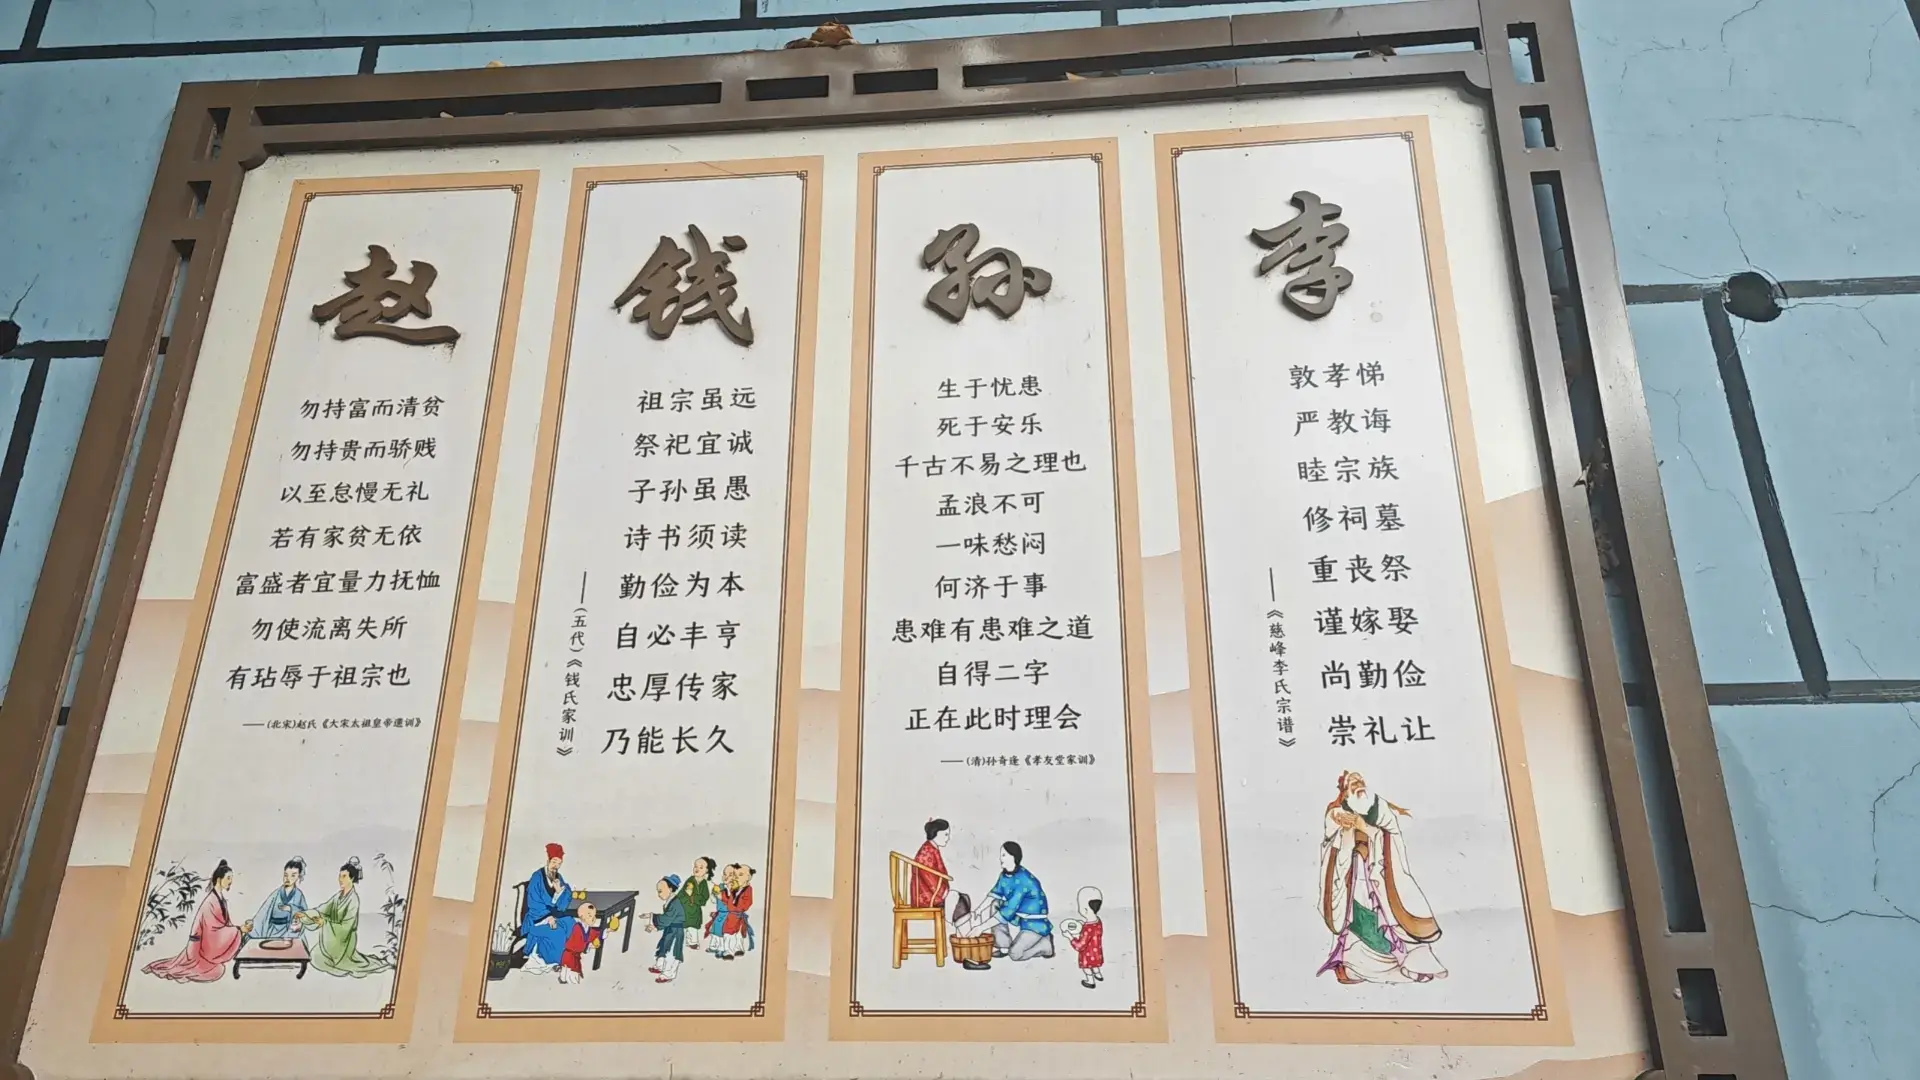 赵
勿持富而清贫
勿持贵而骄贱
以至怠慢无礼
若有家贫无依
富盛者宜量力抚恤
勿使流离失所
有玷辱于祖宗也
——(北宋)赵氏《大宋太祖皇帝遗训》
钱
祖宗虽远
祭祀宜诚
子孙虽愚
诗书须读
勤俭为本
自必丰亨
忠厚传家
乃能长久
——(五代)《钱氏家训》
孙
生于忧患
死于安乐
千古不易之理也
孟浪不可
一味愁闷
何济于事
患难有患难之道
自得二字
正在此时理会
——(清)孙奇逢《孝友堂家训》
李
敦孝悌
严教诲
睦宗族
修祠墓
重丧祭
谨嫁娶
尚勤俭
崇礼让
——《慈峰李氏宗谱》